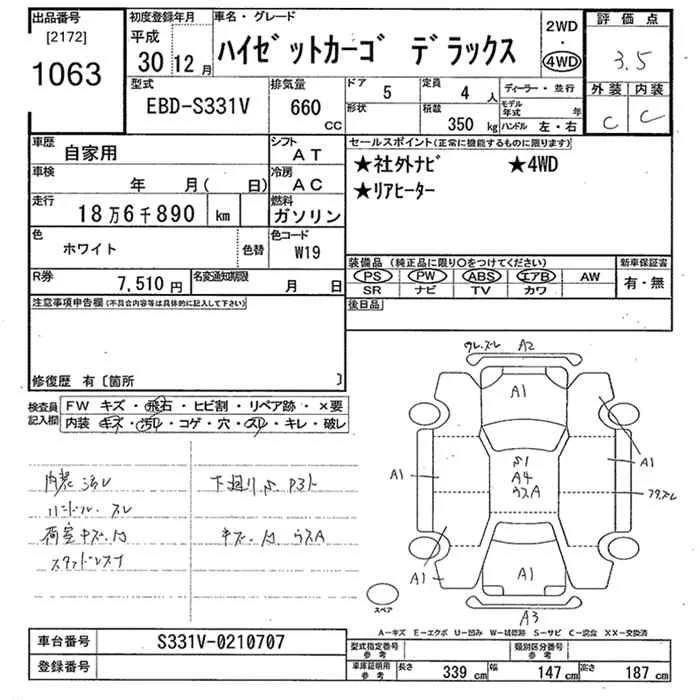 出品番号
[2172]
1063
初度登録年月
平成
30 12 月
車名・グレード
ハイゼットカーゴ デラックス
2WD
・
4WD
評価点
3.5
外装 内装
C C
型式
EBD-S331V
排気量
660
CC
ドア
5
定員
4 人
形状
積載
350 kg
ディーラー・並行
モデル年式 年
ハンドル 左・右
車歴
自家用
シフト
AT
車検
年 月( 日)
冷房
AC
走行
18万6千890 km
燃料
ガソリン
色
ホワイト
色替
色コード
W19
R券
7,510 円
名変通知期限
月 日
セールスポイント(正常に機能するものに限ります)
★社外ナビ ★4WD
★リアヒーター
装備品 (純正品に限り〇をつけてください)
PS PW ABS エアB AW
SR ナビ TV カワ
新車保証書
有・無
後日品
注意事項申告欄(不具合内容等は具体的に記入して下さい)
修復歴 有〔箇所 〕
検査員記入欄
FW キズ・飛石・ヒビ割・リペア跡・×要
内装 キズ・汚レ・コゲ・穴・スレ・キレ・破レ
内装 汚レ
ハンドル スレ
荷室キズ.凹
スタッドレス
下廻り
キズ.凹 ウスA
A2
A1
A1
A1
A4
ウスA
A1
A1
A1
A3
スペア
A-キズ E-エクボ U-凹み W-補修跡 S-サビ C-腐食 XX-交換済
車台番号
S331V-0210707
登録番号
型式指定番号
参考
類別区分番号
参考
車庫証明用
参考
長さ 339 cm 幅 147 cm 高さ 187 cm